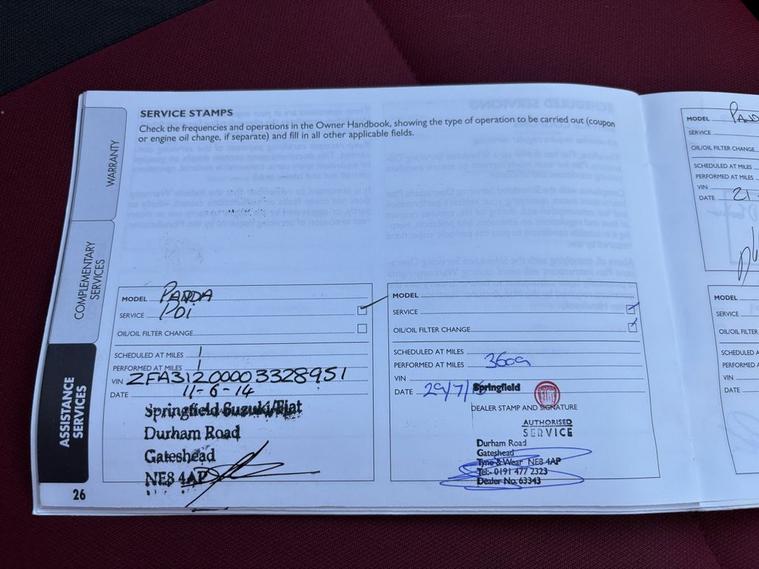 SERVICE STAMPS
Check the frequencies and operations in the Owner Handbook, showing the type of operation to be carried out (coupon
or engine oil change, if separate) and fill in all other applicable fields.
WARRANTY
COMPLEMENTARY
SERVICES
ASSISTANCE
SERVICES
26
MODEL PANDA
SERVICE PDI
OIL/OIL FILTER CHANGE
SCHEDULED AT MILES 1
PERFORMED AT MILES 1
VIN ZFA31200003328951
DATE 11-6-14
Springfield Suzuki/Fiat
Durham Road
Gateshead
NE8 4AP
MODEL
SERVICE
OIL/OIL FILTER CHANGE
SCHEDULED AT MILES
PERFORMED AT MILES 3609
VIN
DATE 29/7/
Springfield
DEALER STAMP AND SIGNATURE
AUTHORISED
SERVICE
Durham Road
Gateshead
Tyne & Wear NE8 4AP
Tel: 0191 477 2323
Dealer No. 63343
MODEL
SERVICE
OIL/OIL FILTER CHANGE
SCHEDULED AT MILES
PERFORMED AT MILES
VIN
DATE 21
MODEL
SERVICE
OIL/OIL FILTER
SCHEDULED
PERFORMED
VIN
DATE